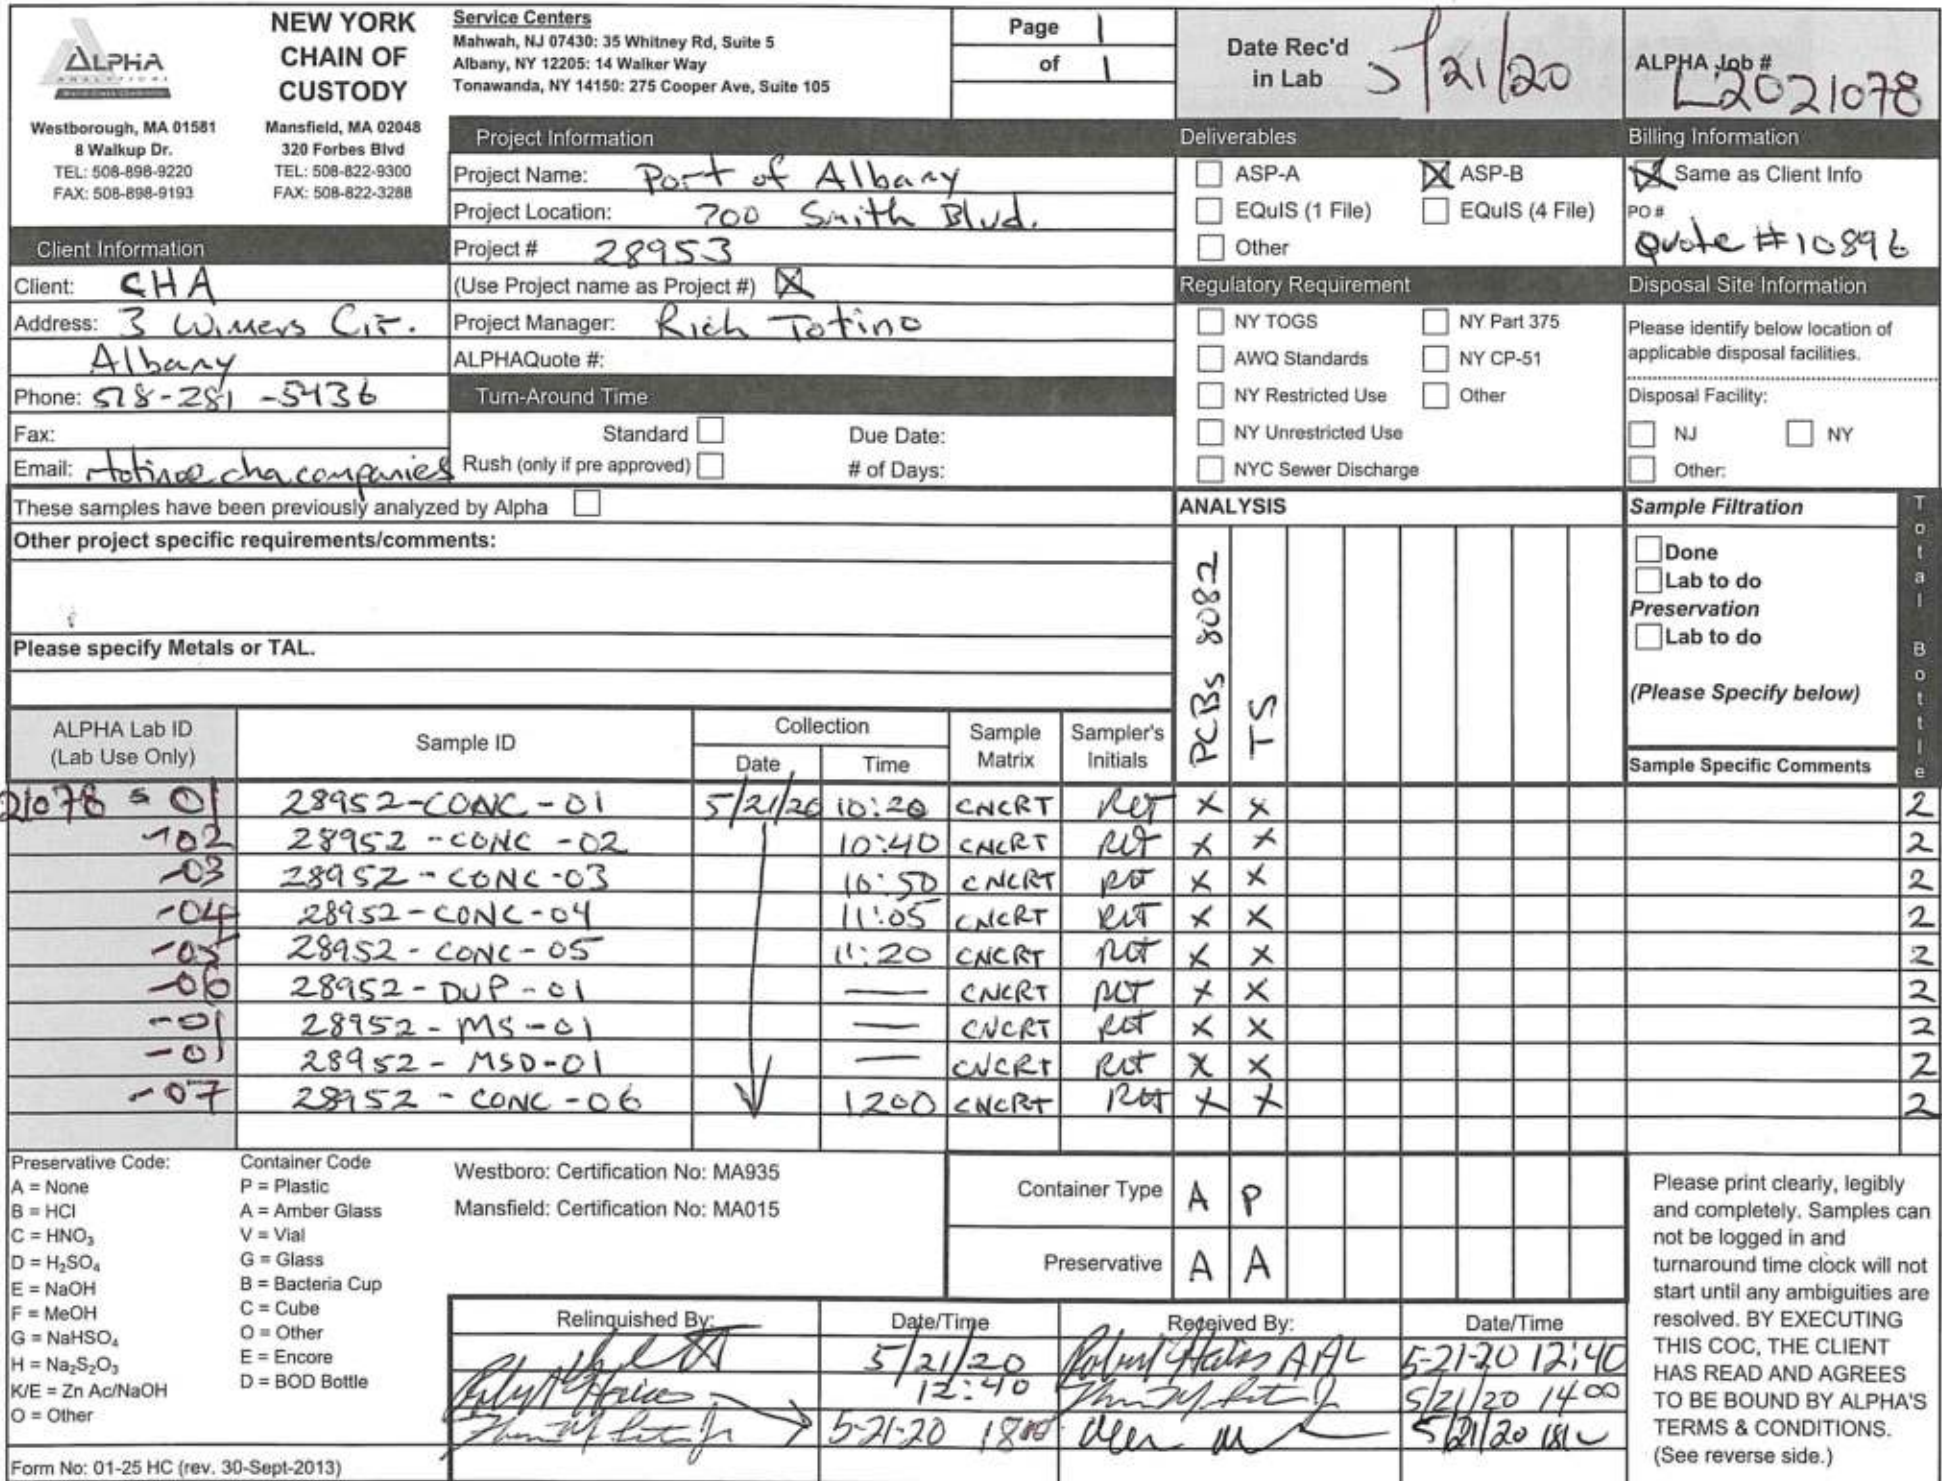 ALPHA
ANALYTICAL
World Class Chemistry
NEW YORK
CHAIN OF
CUSTODY
Westborough, MA 01581
8 Walkup Dr.
TEL: 508-898-9220
FAX: 508-898-9193
Mansfield, MA 02048
320 Forbes Blvd
TEL: 508-822-9300
FAX: 508-822-3288
Service Centers
Mahwah, NJ 07430: 35 Whitney Rd, Suite 5
Albany, NY 12205: 14 Walker Way
Tonawanda, NY 14150: 275 Cooper Ave, Suite 105
Page 1
of 1
Date Rec'd
in Lab 5/21/20
ALPHA Job #
L2021078
Client Information
Client: CHA
Address: 3 Winners Cir.
Albany
Phone: 518-281-5436
Fax:
Email: rtotino@chacompanies
Project Information
Project Name: Port of Albany
Project Location: 700 Smith Blvd.
Project # 28953
(Use Project name as Project #) X
Project Manager: Rich Totino
ALPHAQuote #:
Turn-Around Time
Standard Due Date:
Rush (only if pre approved) # of Days:
Deliverables
ASP-A X ASP-B
EQuIS (1 File) EQuIS (4 File)
Other
Regulatory Requirement
NY TOGS NY Part 375
AWQ Standards NY CP-51
NY Restricted Use Other
NY Unrestricted Use
NYC Sewer Discharge
Billing Information
X Same as Client Info
PO #
Quote #10896
Disposal Site Information
Please identify below location of
applicable disposal facilities.
Disposal Facility:
NJ NY
Other:
These samples have been previously analyzed by Alpha
Other project specific requirements/comments:
Please specify Metals or TAL.
ANALYSIS
PCBs 8082
TS
Sample Filtration
Done
Lab to do
Preservation
Lab to do
(Please Specify below)
Total Bottle
ALPHA Lab ID
(Lab Use Only)
Sample ID
Collection
Date Time
Sample
Matrix
Sampler's
Initials
Sample Specific Comments
21078 - 01 28952-CONC-01 5/21/20 10:20 CNCRT RLT X X 2
-02 28952-CONC-02 10:40 CNCRT RLT X X 2
-03 28952-CONC-03 10:50 CNCRT RLT X X 2
-04 28952-CONC-04 11:05 CNCRT RLT X X 2
-05 28952-CONC-05 11:20 CNCRT RLT X X 2
-06 28952-DUP-01 — CNCRT RLT X X 2
-01 28952-MS-01 — CNCRT RLT X X 2
-01 28952-MSD-01 — CNCRT RLT X X 2
-07 28952-CONC-06 1200 CNCRT RLT X X 2
Preservative Code:
A = None
B = HCl
C = HNO3
D = H2SO4
E = NaOH
F = MeOH
G = NaHSO4
H = Na2S2O3
K/E = Zn Ac/NaOH
O = Other
Container Code
P = Plastic
A = Amber Glass
V = Vial
G = Glass
B = Bacteria Cup
C = Cube
O = Other
E = Encore
D = BOD Bottle
Westboro: Certification No: MA935
Mansfield: Certification No: MA015
Container Type A P
Preservative A A
Relinquished By: Date/Time Received By: Date/Time
5/21/20 12:40 AAL 5-21-20 12:40
5/21/20 1400
5-21-20 1800 5/21/20
Please print clearly, legibly
and completely. Samples can
not be logged in and
turnaround time clock will not
start until any ambiguities are
resolved. BY EXECUTING
THIS COC, THE CLIENT
HAS READ AND AGREES
TO BE BOUND BY ALPHA'S
TERMS & CONDITIONS.
(See reverse side.)
Form No: 01-25 HC (rev. 30-Sept-2013)